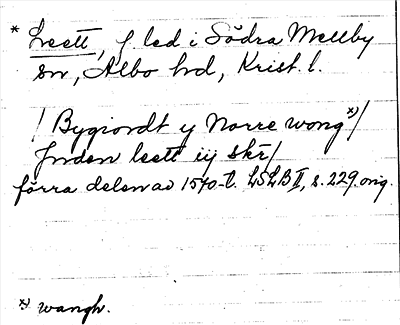 * Leett, f. led i Södra Mellby
sn, Albo hd, Krist. l.
/ Bygiordt y Norre wong *)/
Jnden leett iij skr/
förra delen av 1570-t. LSLB II, s. 229. orig.
*) wangh.